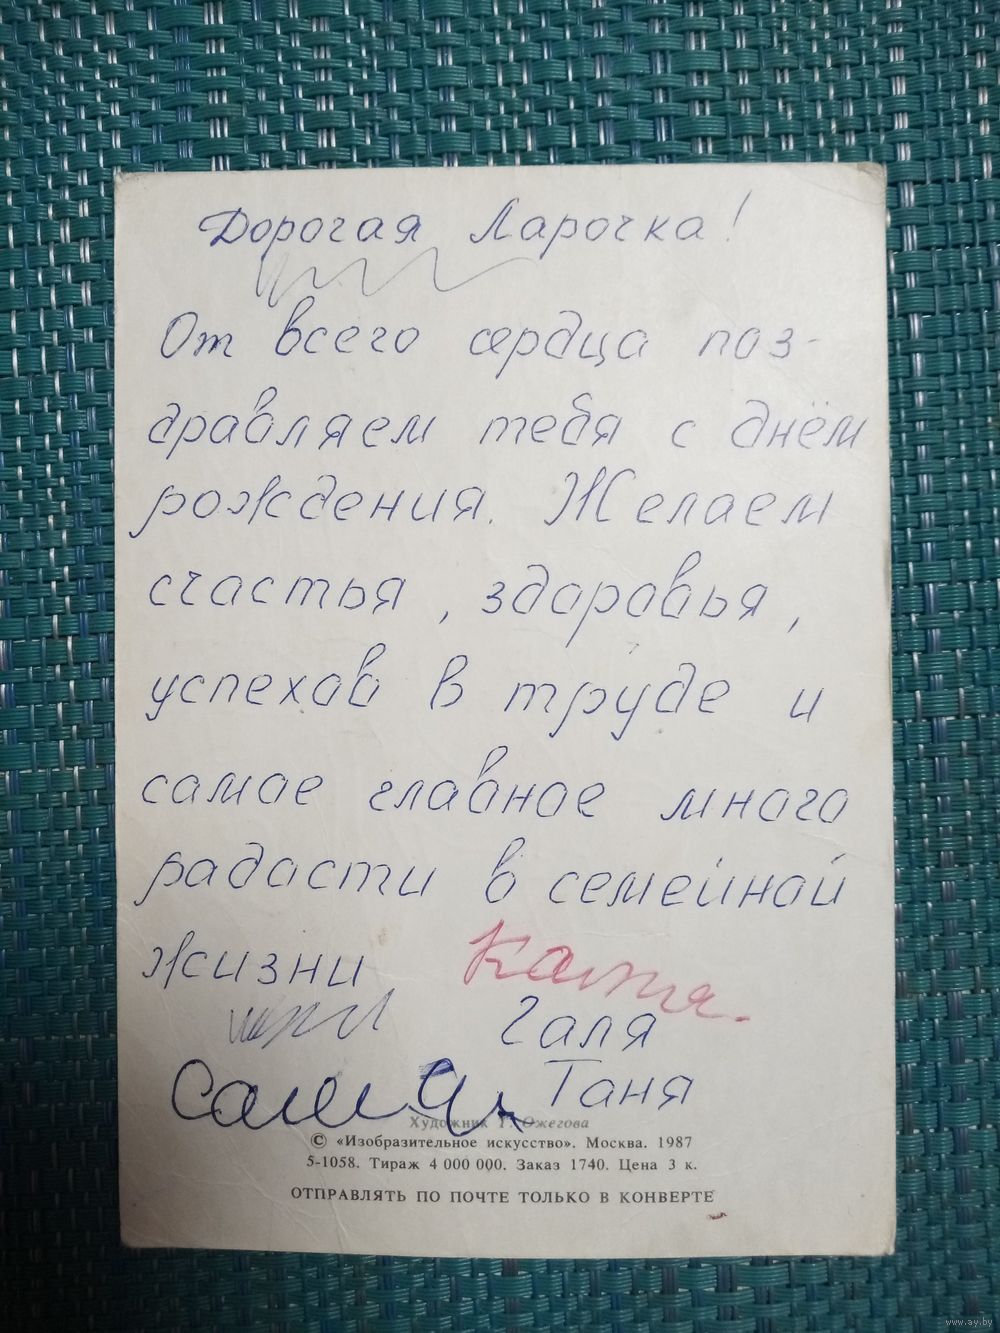 Дорогая Ларочка!
От всего сердца поз-
дравляем тебя с днём
рождения. Желаем
счастья, здоровья,
успехов в труде и
самое главное много
радости в семейной
жизни
Катя.
Галя
Саша
Таня
Художник Т. Ожегова
© «Изобразительное искусство». Москва. 1987
5-1058. Тираж 4 000 000. Заказ 1740. Цена 3 к.
ОТПРАВЛЯТЬ ПО ПОЧТЕ ТОЛЬКО В КОНВЕРТЕ
www.ay.by